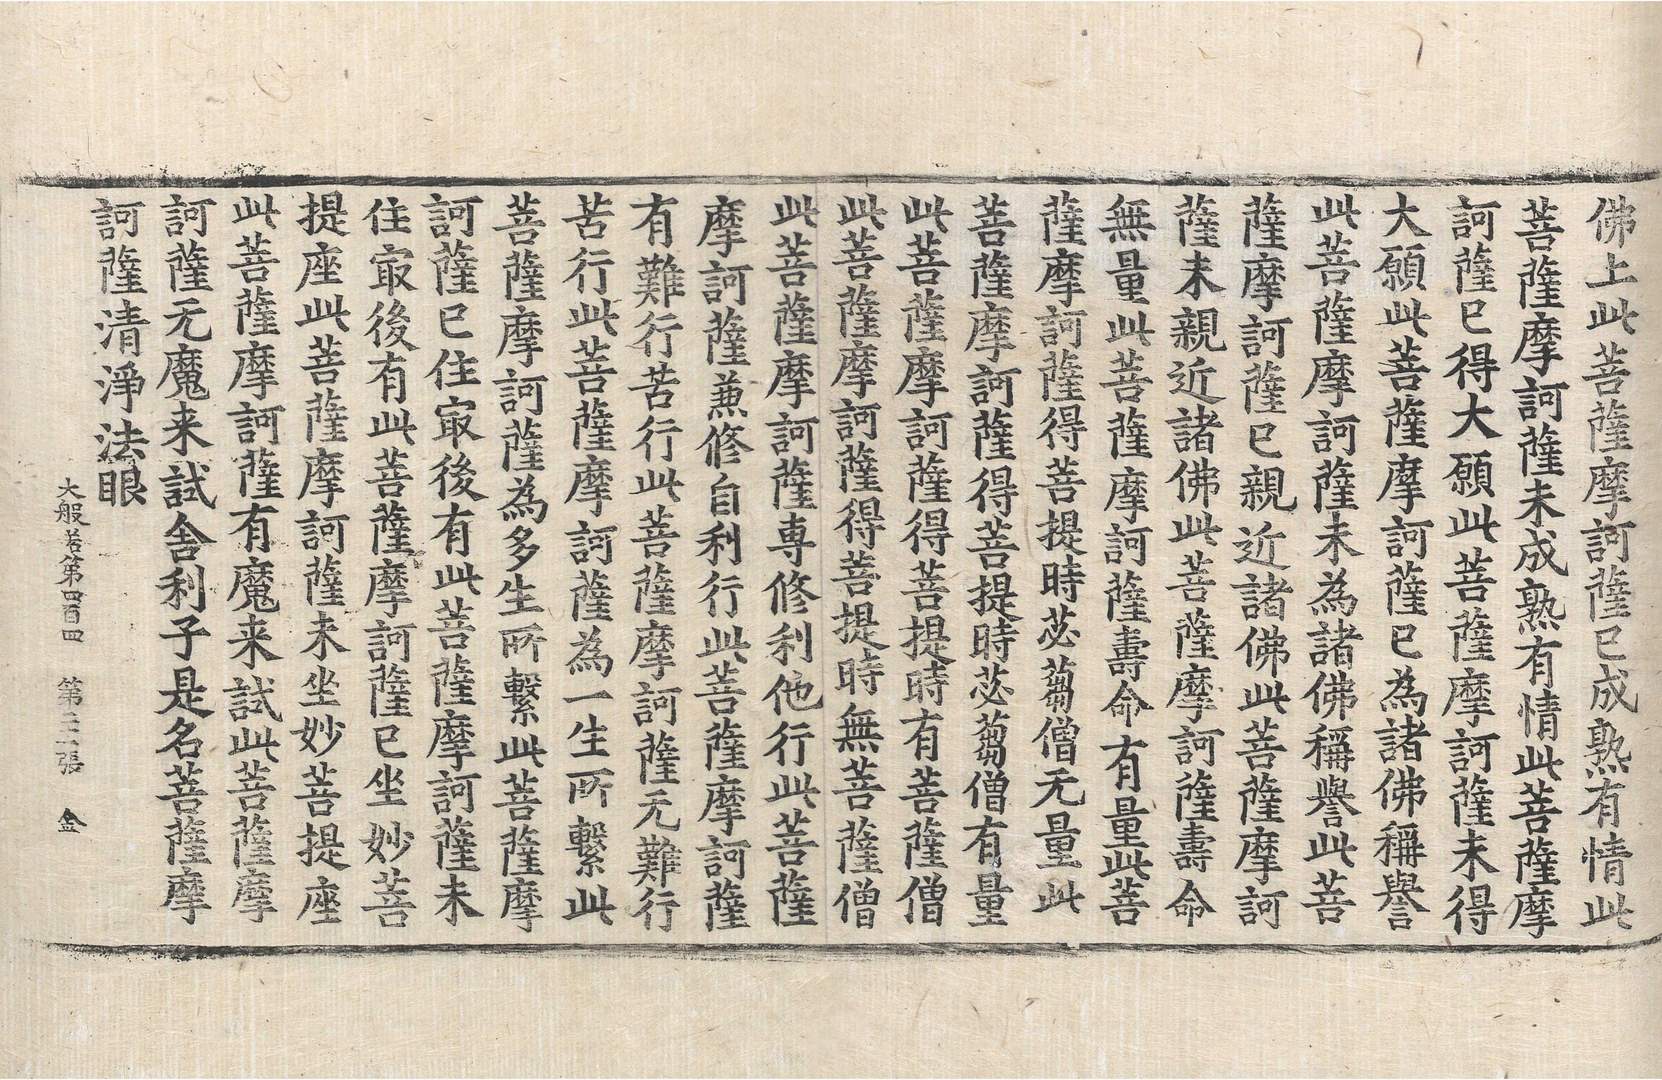 佛上此菩薩摩訶薩已成熟有情此
菩薩摩訶薩未成熟有情此菩薩摩
訶薩已得大願此菩薩摩訶薩未得
大願此菩薩摩訶薩已為諸佛稱譽
此菩薩摩訶薩未為諸佛稱譽此菩
薩摩訶薩已親近諸佛此菩薩摩訶
薩未親近諸佛此菩薩摩訶薩壽命
無量此菩薩摩訶薩壽命有量此菩
薩摩訶薩得菩提時苾芻僧无量此
菩薩摩訶薩得菩提時苾芻僧有量
此菩薩摩訶薩得菩提時有菩薩僧
此菩薩摩訶薩得菩提時無菩薩僧
此菩薩摩訶薩專修利他行此菩薩
摩訶薩兼修自利行此菩薩摩訶薩
有難行苦行此菩薩摩訶薩无難行
苦行此菩薩摩訶薩為一生所繫此
菩薩摩訶薩為多生所繫此菩薩摩
訶薩已住㝡後有此菩薩摩訶薩未
住㝡後有此菩薩摩訶薩已坐妙菩
提座此菩薩摩訶薩未坐妙菩提座
此菩薩摩訶薩有魔来試此菩薩摩
訶薩无魔来試舍利子是名菩薩摩
訶薩清淨法眼
大般若第四百四 第三張 金